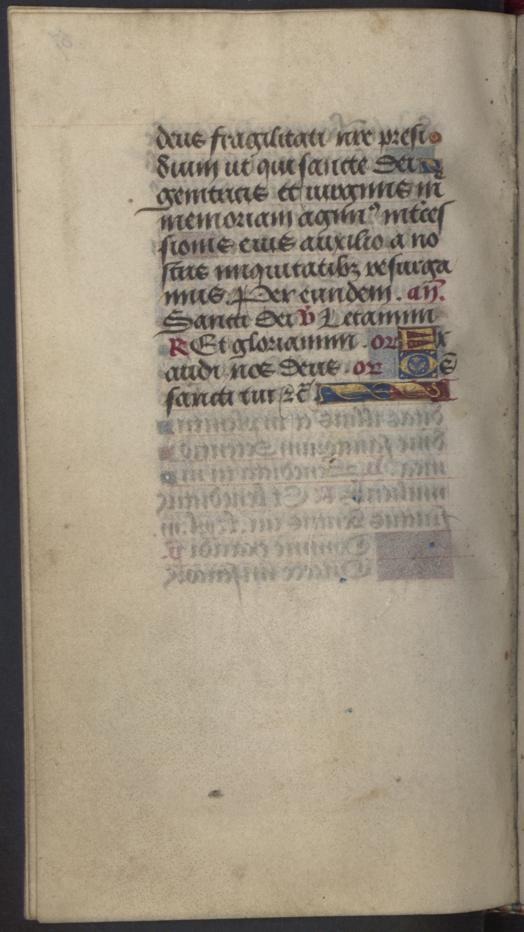 deus fragilitati nr̄e presi
dium ut qui sancte dei
genitricis et virginis m
memoriam agimꝰ int̄ces
sionis eius auxilio a no
stris iniquitatibꝫ resurga
mus. Per eundem. añ.
Sancti dei ꝟ Letamini
R Et gloriamini. or̄ Ex
audi nos deus. or̄ Os̄
sancti tui ⁊c̄